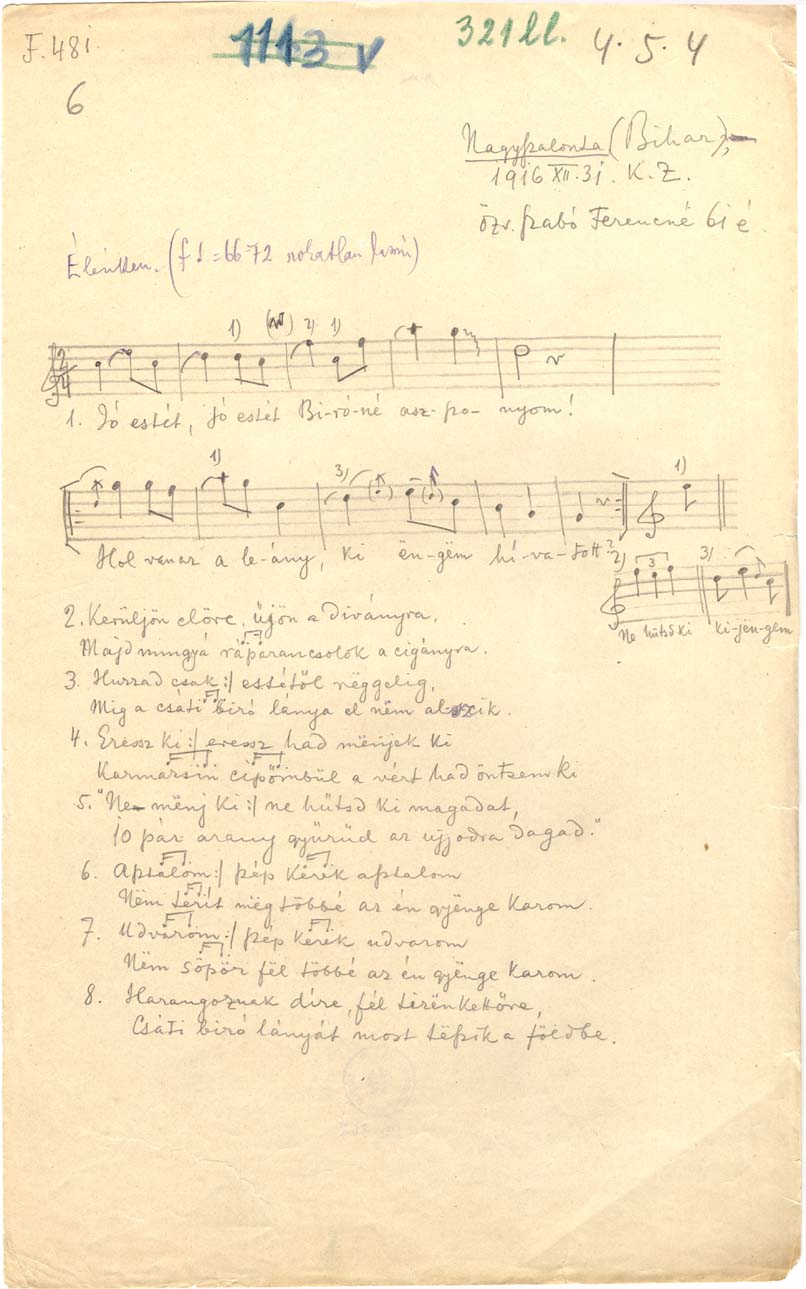 F. 481.
1113 v
321 ll.
4. 5. 4
6
Nagyszalonta (Bihar),
1916 XII. 31. K. Z.
özv. Szabó Ferencné 61 é.
Élénken. (f ♩ = 66-72
1) 2) 1)
2/4
1. Jó estét, jó estét Bi-ró-né asz-szo-nyom!
1) 3) 1)
Hol vanaz a le-ány, ki ën-gëm hí-va-tott?
2) 3 3)
Ne hütsd ki ki-jën-gem
2. Kerüljön elöre, üjön a diványra,
Majd mingyá ráparancsolok a cigányra.
3. Huzzad csak :/ estétől rëggelig,
Mig a csáti biró lánya el nëm aluszik.
4. Eressz ki :/ eressz had mënjek ki
Karmazsin cipőmbül a vért had öntsem ki
5. "Ne mënj ki :/ ne hütsd ki magadat,
10 pár arany gyürüd az ujjodra dagad."
6. Asztalom :/ szép kerek asztalom
Nëm terít mëg többé az én gyënge karom.
7. Udvarom :/ szép kerek udvarom
Nëm söpör fël többé az én gyënge karom.
8. Harangoznak díre, fél tizënkettőre,
Csáti biró lányát most tëszik a földbe.